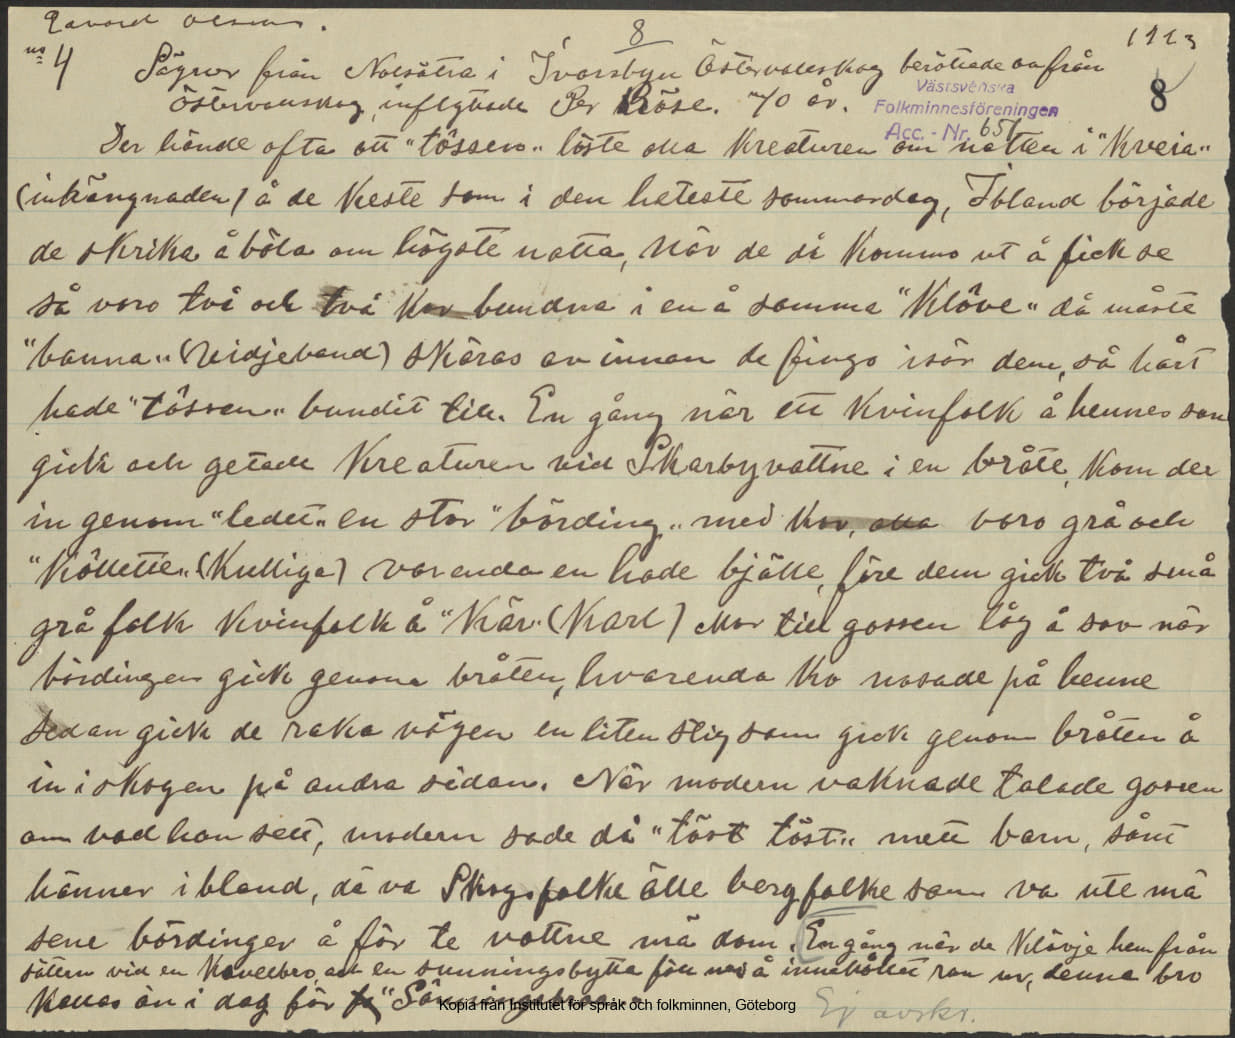 8
1923
no 4 Sägner från Nolsätra i Ivarsbyn Östervallskog berättade av från
Östervallskog, inflyttade Per Böse. 70 år.
Västsvenska
Folkminnesföreningen
Acc. - Nr. 651
8
Der hände ofta att "tössen" löste alla kreaturen om natten i "kveia"
(inhängnaden) å de keste som i den heteste sommardag, Ibland började
de skrika å böla om högste natta, när de då kommo ut å fick se
så voro två och två kor bundna i en å samma "klôve" då måste
"banna" (vidjeband) skäras av innan de fingo isär dem, så hårt
hade "tôssen" bundit till. En gång när ett kvinfolk å hennes son
gick och getade kreaturen vid Skarbyvattne i en bråte, kom der
in genom "ledet" en stor "bôrding" med kor, alla voro grå och
"kôllette" (kulliga) varenda en hade bjälle, före dem gick två små
grå folk kvinfolk å "kär" (karl) Mor till gossen låg å sov när
bördingen gick genom bråten, hvarenda ko nosade på henne
sedan gick de raka vägen en liten stig som gick genom bråten å
in i skogen på andra sidan. När modern vaknade talade gossen
om vad han sett, modern sade då "töst töst" mett barn, sånt
hänner ibland, dä va Skogsfolke älle bergfolke som va ute mä
sene bördinger å för te vattne mä dom. En gång när de klövje hem från
sätern vid en kavelbro, och en sunningsbytta föll ned å innehållet ran ur, denna bro
kallas än i dag för
Kopia från Institutet för språk och folkminnen, Göteborg
Ej avskr.